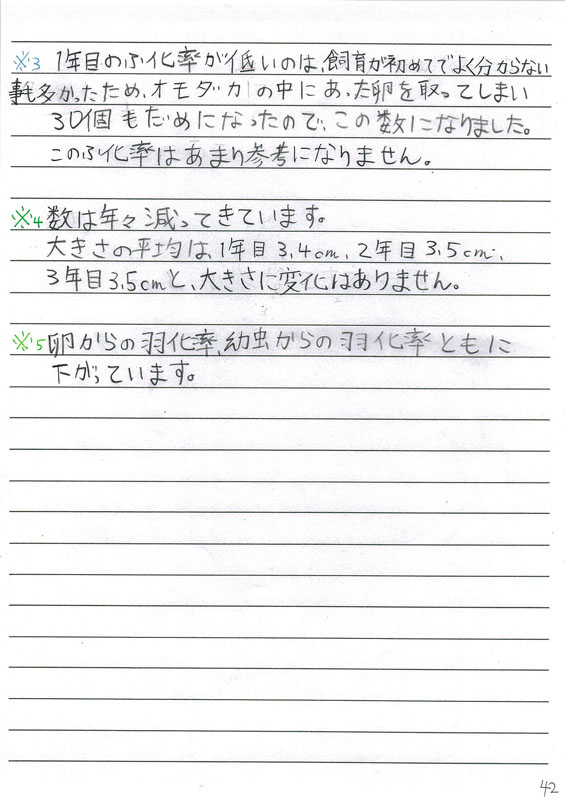 ※3 1年目のふ化率が低いのは、飼育が初めてでよく分からない
事も多かったため、オモダカの中にあった卵を取ってしまい
30個もだめになったので、この数になりました。
このふ化率はあまり参考になりません。
※4 数は年々減ってきています。
大きさの平均は、1年目3.4cm、2年目3.5cm、
3年目3.5cmと、大きさに変化はありません。
※5 卵からの羽化率、幼虫からの羽化率ともに
下がっています。
42